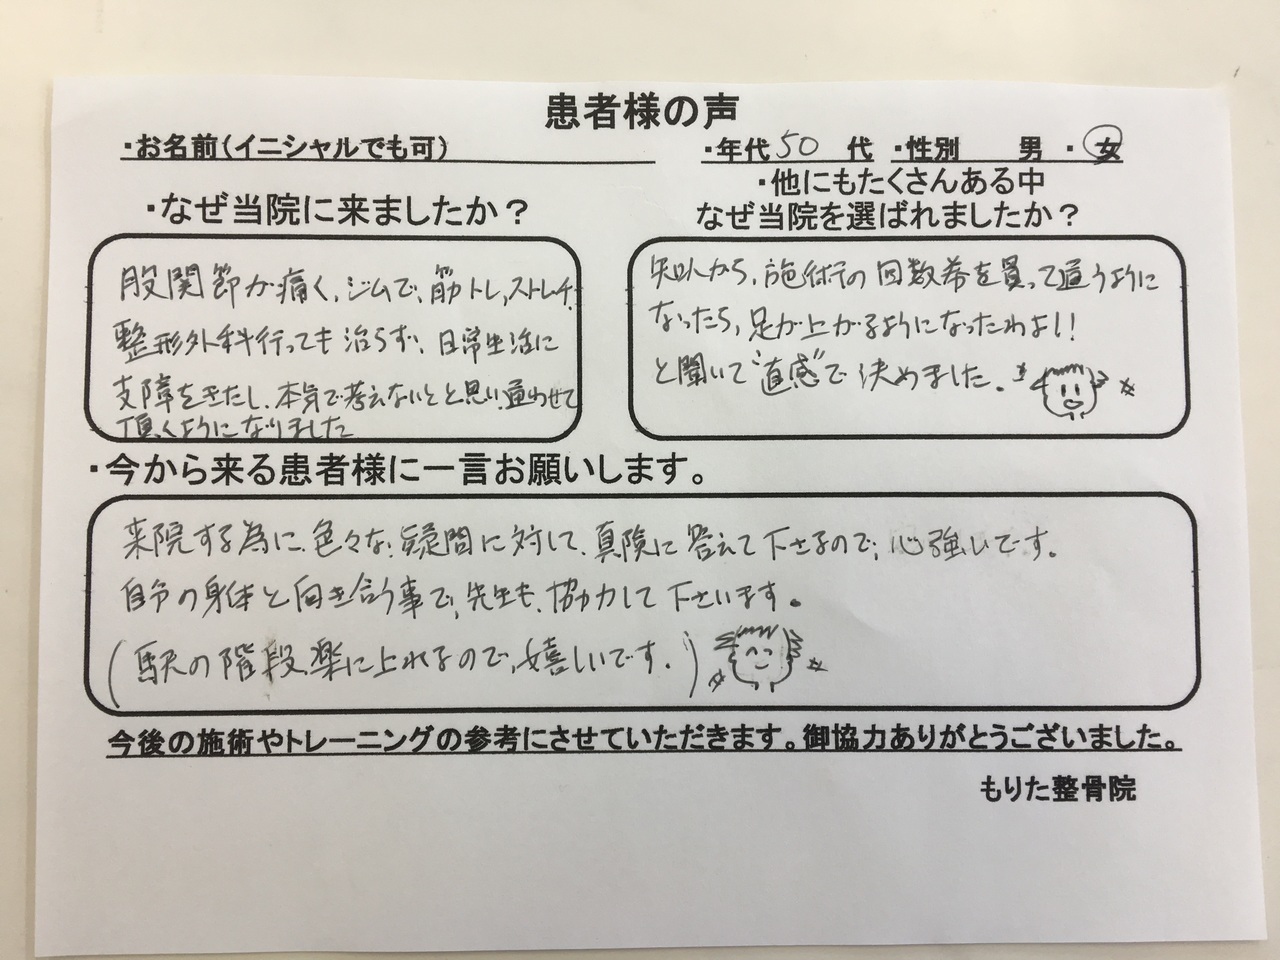 患者様の声
・お名前(イニシャルでも可)
・年代50代 ・性別 男・女
・なぜ当院に来ましたか？
股関節が痛く、ジムで、筋トレ、ストレッチ、
整形外科行っても治らず、日常生活に
支障をきたし、本気で考えないとと思い、通わせて
頂くようになりました
・他にもたくさんある中
なぜ当院を選ばれましたか？
知人から、施術の回数券を買って通うように
なったら、足が上がるようになったわよ!!
と聞いて"直感"で決めました。
・今から来る患者様に一言お願いします。
来院する為に、色々な、疑問に対して、真険に答えて下さるので、心強いです。
自分の身体と向き合う事で、先生も、協力して下さいます。
(駅の階段、楽に上れるので、嬉しいです。)
今後の施術やトレーニングの参考にさせていただきます。御協力ありがとうございました。
もりた整骨院